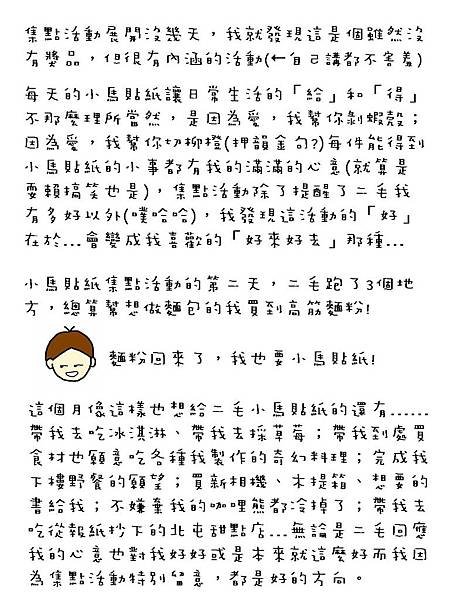 集點活動展開沒幾天，我就發現這是個雖然沒
有獎品，但很有內涵的活動(←自己講都不害羞)
每天的小馬貼紙讓日常生活的「給」和「得」
不那麼理所當然，是因為愛，我幫你剝蝦殼；
因為愛，我幫你切柳橙(押韻金句?)每件能得到
小馬貼紙的小事都有我的滿滿的心意(就算是
耍賴搞笑也是)，集點活動除了提醒了二毛我
有多好以外(噗哈哈)，我發現這活動的「好」
在於...會變成我喜歡的「好來好去」那種...
小馬貼紙集點活動的第二天，二毛跑了3個地
方，總算幫想做麵包的我買到高筋麵粉!
麵粉回來了，我也要小馬貼紙!
這個月像這樣也想給二毛小馬貼紙的還有......
帶我去吃冰淇淋、帶我去採草莓；帶我到處買
食材也願意吃各種我製作的奇幻料理；完成我
下樓野餐的願望；買新相機、木提箱、想要的
書給我；不嫌棄我的咖哩熊都冷掉了；帶我去
吃從報紙抄下的北屯甜點店...無論是二毛回應
我的心意也對我好好或是本來就這麼好而我因
為集點活動特別留意，都是好的方向。